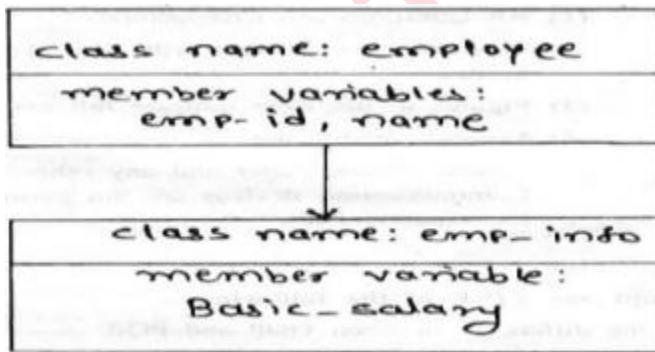 class name: employee
member variables:
emp-id, name
class name: emp_info
member variable:
Basic_salary